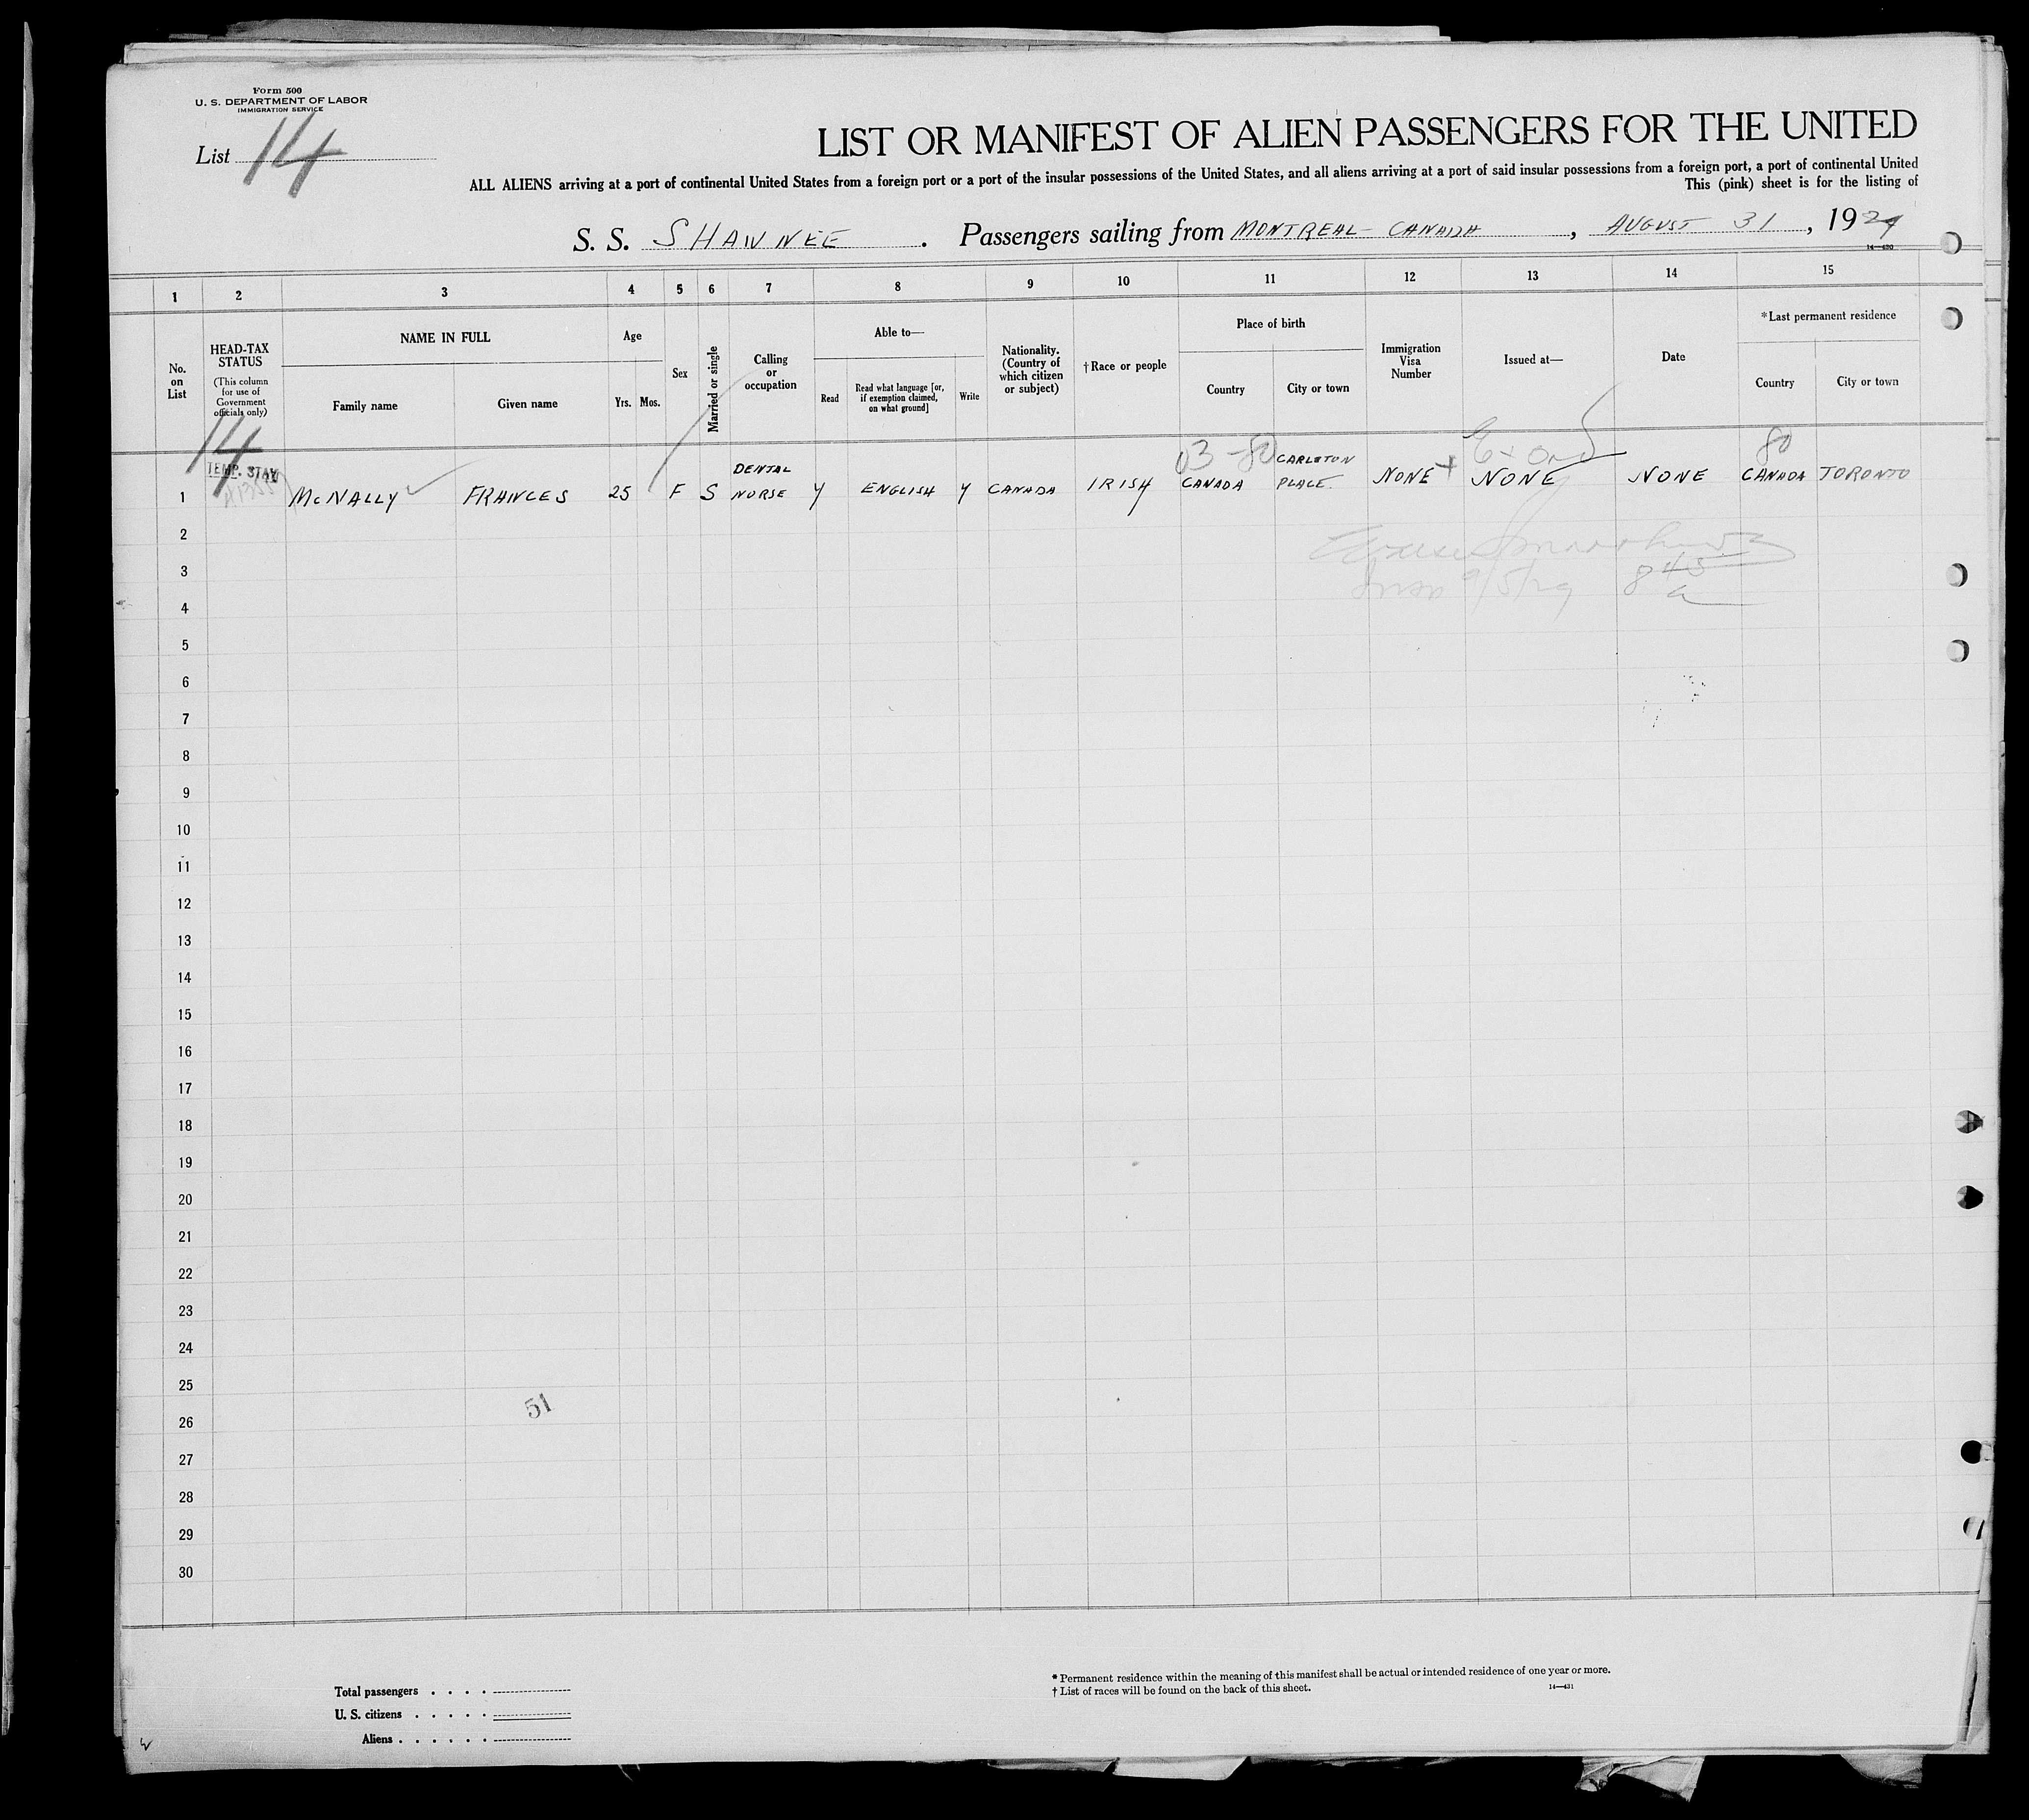 Form 500
U. S. DEPARTMENT OF LABOR
IMMIGRATION SERVICE
List 14
LIST OR MANIFEST OF ALIEN PASSENGERS FOR THE UNITED
ALL ALIENS arriving at a port of continental United States from a foreign port or a port of the insular possessions of the United States, and all aliens arriving at a port of said insular possessions from a foreign port, a port of continental United
This (pink) sheet is for the listing of
S. S. SHAWNEE . Passengers sailing from MONTREAL - CANADA , AUGUST 31 , 1929
14—430
1 2 3 4 5 6 7 8 9 10 11 12 13 14 15
No. on List
HEAD-TAX STATUS
(This column for use of Government officials only)
NAME IN FULL
Family name
Given name
Age
Yrs. Mos.
Sex
Married or single
Calling or occupation
Able to—
Read
Read what language [or, if exemption claimed, on what ground]
Write
Nationality. (Country of which citizen or subject)
†Race or people
Place of birth
Country
City or town
Immigration Visa Number
Issued at—
Date
*Last permanent residence
Country
City or town
14
03 - 80
80
TEMP. STAY
1 McNALLY FRANCES 25 F S DENTAL NURSE Y ENGLISH Y CANADA IRISH CANADA CARLETON PLACE. NONE NONE NONE CANADA TORONTO
2
3
9/5/29 8 45 a
4
5
6
7
8
9
10
11
12
13
14
15
16
17
18
19
20
21
22
23
24
25
51
26
27
28
29
30
Total passengers . . . .
U. S. citizens . . . . .
Aliens . . . . . .
* Permanent residence within the meaning of this manifest shall be actual or intended residence of one year or more.
† List of races will be found on the back of this sheet.
14—431